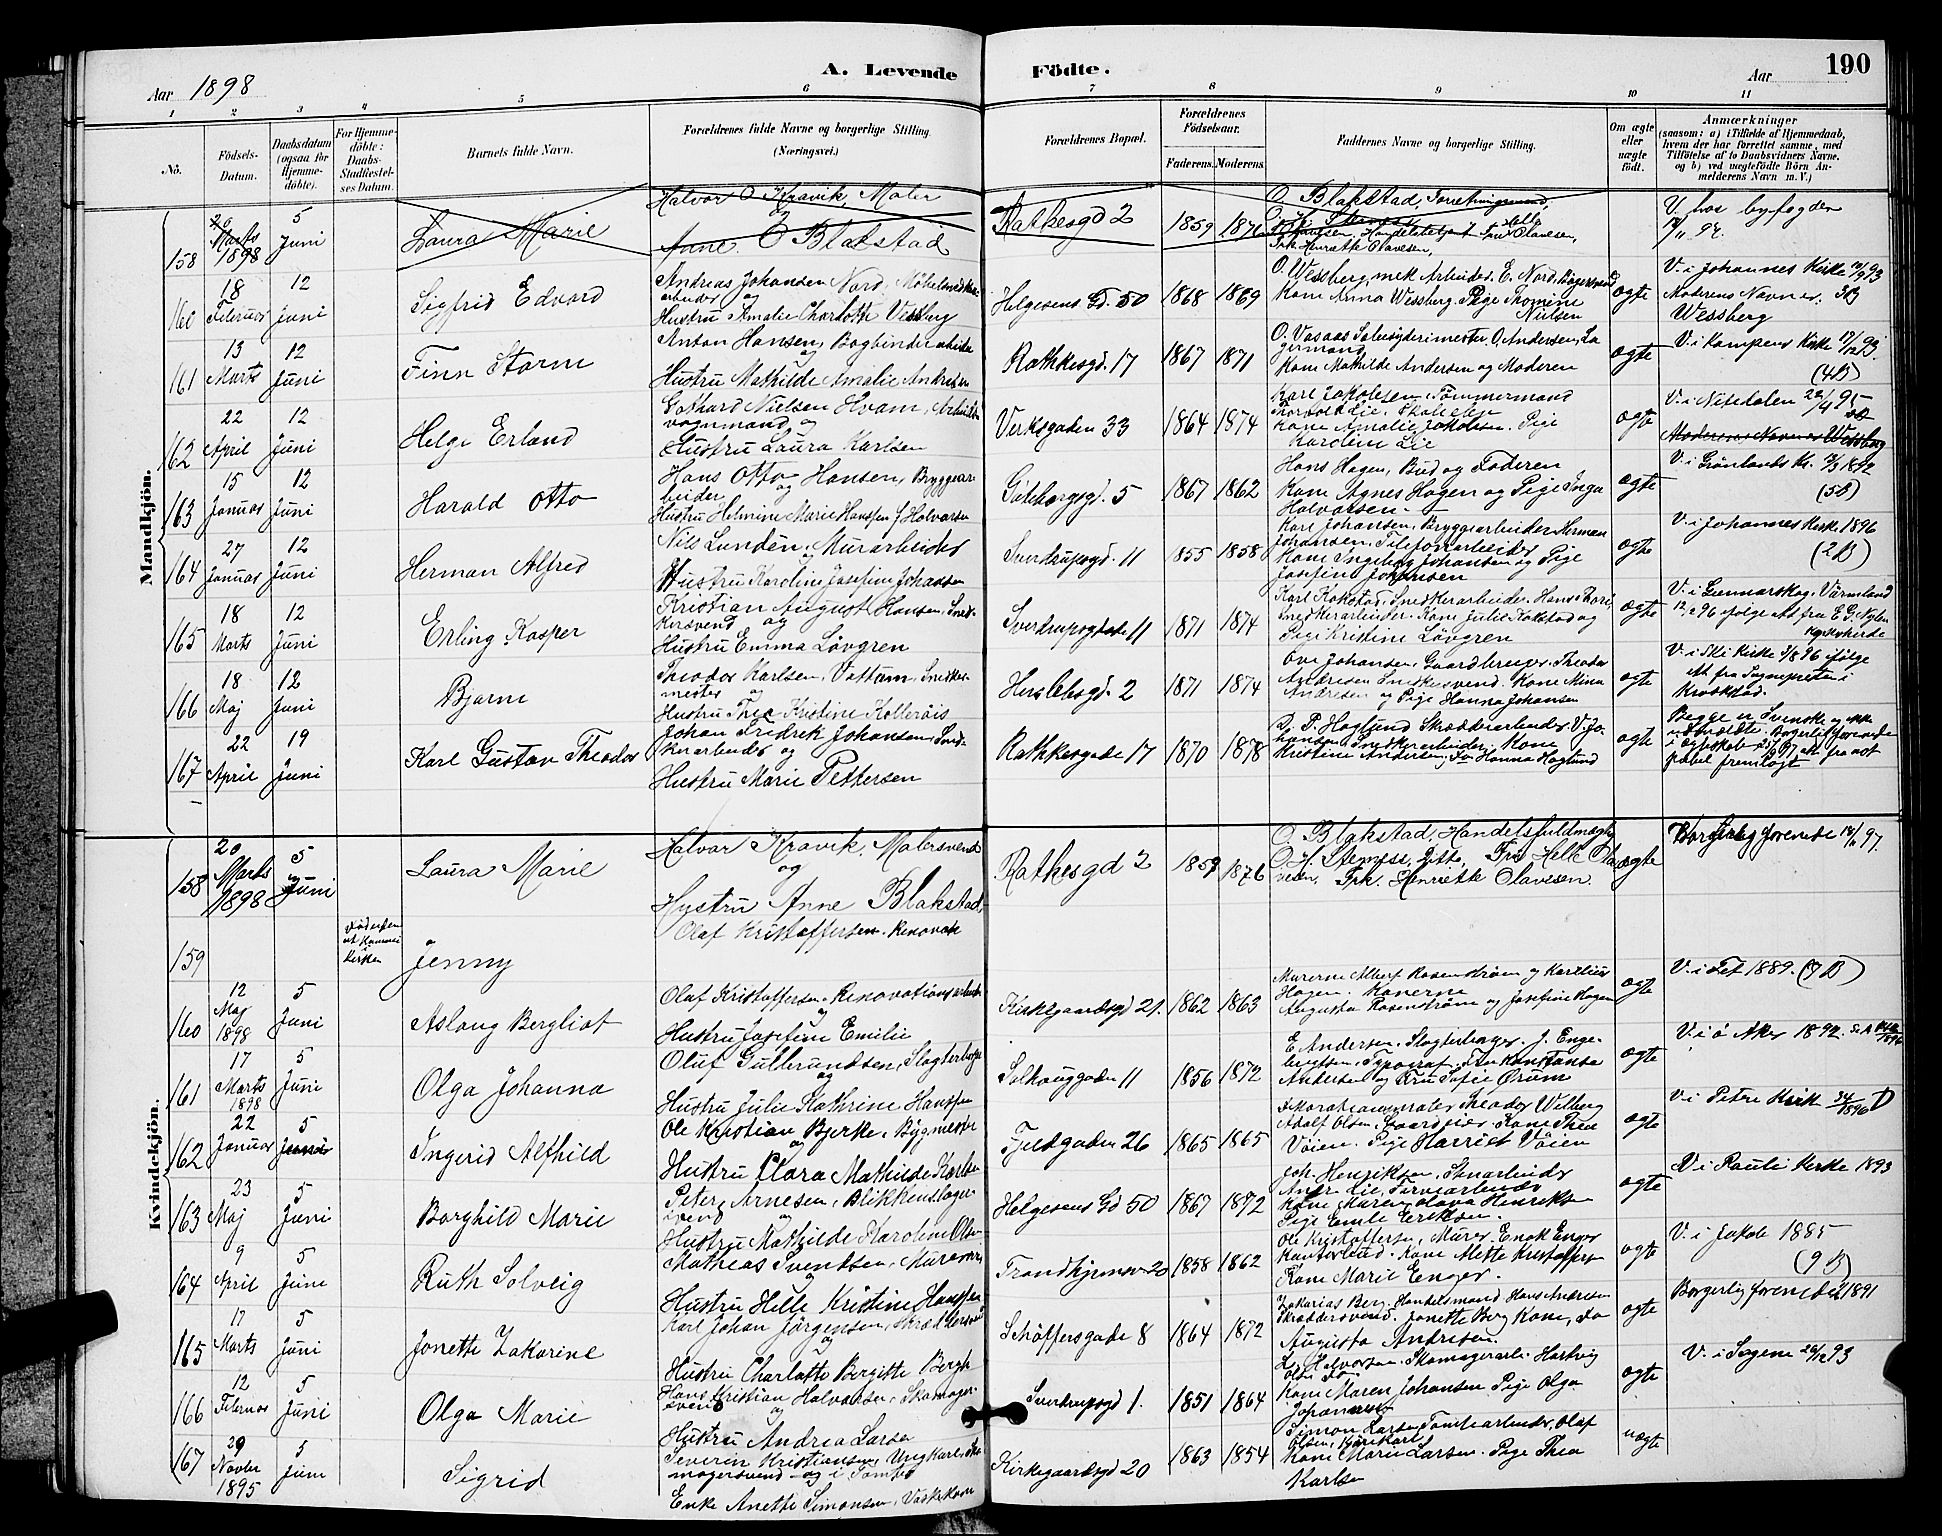 Aar 1898
A. Levende
Födte.
Aar
190
1 2 3 4 5 6 7 8 9 10 11
No.
Födsels-
Datum.
Daabsdatum
(ogsaa for
Hjemme-
döbte).
For Hjemme-
döbte:
Daabs-
Stadfæstel-
ses Datum.
Barnets fulde Navn.
Forældrenes fulde Navne og borgerlige Stilling.
(Næringsvei.)
Forældrenes Bopæl.
Forældrenes
Födselsaar.
Faderens. Moderens.
Faddernes Navne og borgerlige Stilling.
Om ægte
eller
uægte
födt.
Anmærkninger
(saasom: a) i Tilfælde af Hjemmedaab,
hvem der har forrettet samme, med
Tilföielse af to Daabsvidners Navne,
og b) ved uægtefödte Börn An-
melderens Navn m. V.)
Mandkjön.
158 20 Marts 1898 5 Juni
Laura Marie
Halvor O Kravik, Maler
og
Anne O Blakstad
Rathkesgd 2 1859 1876
O. Blakstad
V. hos byfogden
160 18 Februar 12 Juni
Sigfrid Edvard
Andreas Johansen Nord, Möbelsnedker
arbeider og
Hustru Amalie Charlotte Vessberg
Helgesens Gd. 50 1868 1869
O. Wessberg, mek Arbeider. E. Nord, Bögersvend
Kone Anna Wessberg. Pige Thomine
Nielsen
ægte
V. i Johannes Kirke
Moderens Navn er
Wessberg
161 13 Marts 12 Juni
Finn Storm
Anton Hansen, Bogbinderarbeider
og
Hustru Mathilde Amalie Andersen
Rathkesgd. 17 1867 1871
Kone Mathilde Andersen og Moderen
ægte
V. i Kampens Kirke
(4B)
162 22 April 12 Juni
Helge Erland
Gothard Nielsen Hvam, Arbeids-
vognmand og
Hustru Laura Karlsen
Verksgaden 33 1864 1874
Karl Jakobsen, Tömmermand
Kone Amalie Jakobsen. Pige
Karoline Lie
ægte
V. i Nitedalen
Moderens Navn er Wessberg
163 15 Januar 12 Juni
Harald Otto
Hans Otto Hansen, Bryggear-
beider og
Hustru Helmine Marie Hanssen f Halvorsen
Göteborgsgd. 5 1867 1862
Hans Hagen, Bud og Faderen
Kone Agnes Hagen og Pige Inga
Halvorsen
ægte
V. i Grönlands K. 1892
(5B)
164 27 Januar 12 Juni
Herman Alfred
Nils Lundén, Murarbeider
og
Hustru Karoline Josefine Johansen
Sverdrupsgd. 11 1855 1858
Karl Johansen, Bryggearbeider. Herman
Johansen, Telefonarbeider
Kone Ingeborg Johansen og Pige
Josefine Johansen
ægte
V. i Johannes Kirke 1896
(2B)
165 18 Marts 12 Juni
Erling Kasper
Kristian August Hansen, Sned-
kersvend og
Hustru Emma Lövgren
Sverdrupsgade 11 1871 1874
Karl Kokstad, Snedkerarbeider. Hans Thori,
Snedkerarbeider. Kone Julie Kokstad og
Pige Kristine Lövgren
ægte
V. i Gunnarskog, Värmland
166 18 Maj 12 Juni
Bjarne
Theodor Karlsen, Vattum, Snedker-
mester og
Hustru Thea Kristine Kolleröis
Herslebsgd. 2 1871 1874
Ove Johansen, Gaardbruger. Theodor
Andresen Snedkersvend. Kone Mina
Andresen og Pige Hanna Johansen
ægte
V. i Ski Kirke ifölge
At. fra Sognepresten i
Kraakstad.
167 22 April 19 Juni
Karl Gustav Theodor
Johan Fredrik Johansen, Sned-
kerarbeider og
Hustru Marie Pettersen
Rathkesgade 17 1870 1878
P. Haglund Skrædderarbeider. V. Jo-
hansen, Snedkerarbeider, Kone
Kristine Andersen, Do Hanna Haglund
ægte
Begge er Svenske og ikke
Kvindekjön.
158 20 Marts 1898 5 Juni
Laura Marie
Halvor Kravik, Malersvend
og
Hustru Anne Blakstad
Rathkesgd 2 1859 1876
O Blakstad, Handelsfuldmægtig
Frk. Henriette Olavesen.
ægte
Borgerlig forenede
159
Jenny
Olaf Kristoffersen. Renovati
160 12 Maj 1898 5 Juni
Aslaug Bergliot
Olaf Kristoffersen. Renovationsarbeider
og
Hustru Josefine Emilie
Kirkegaardsgd 21. 1862 1863
Murerne Albert Rosenström og
Hagen. Konerne
Augusta Rosenström og Josefine Hagen
ægte
V. i Fet 1889.
161 17 Marts 1898 5 Juni
Olga Johanna
Oluf Gulbrandsen, Slagterborger
og
Hustru Julie Kathrine Hanssen
Solhauggaden 11 1856 1872
E. Andersen. Slagterborger. J. Enge-
bretsen, Typograf. Fru Konstanse
Andersen og Fru Sofie Örum
ægte
V. i ö Aker 1892.
162 22 Januar 5
Ingerid Alfhild
Ole Kristian Bjerke. Bygmester
og
Hustru Clara Mathilde Karlsen
Fjeldgaden 26 1865 1865
Vöien. Pige Harriet Vöien
ægte
V. i Petri Kirk
163 23 Maj 5 Juni
Borghild Marie
Peter Arnesen, Blikkenslager-
svend og
Hustru Mathilde Karoline Olsen
Helgesens Gd 50 1867 1872
Joh. Henriksen, Stenarbeider
Andr. Lie, Farvearbeider
Pige Emilie Eriksen.
ægte
V i Pauli Kirke 1893
164 9 April 5 Juni
Ruth Solveig
Mathias Svendsen, Mursvend
og
Hustru Helle Kristine Hanssen
Trondhjemsv 20 1858 1862
Ole Kristoffersen, Murer. Enok Enger
Kontorbud. Kone Mette Kristoffersen
Kone Marie Enger.
ægte
V. i Jakob 1885
(9B)
165 17 Marts 5 Juni
Jonette Zakarine
Karl Johan Jörgensen, Skræddersvend
og
Hustru Charlotte Bergitte Bergh
Schöffersgade 8 1864 1872
Zakarias Berg, Handelsmand. Hans Andresen
Skræddersvend. Jonette Berg Kone, Do
Augusta Andresen.
ægte
Borgerlig forenede 1891
166 12 Februar 5 Juni
Olga Marie
Hans Kristian Halvorsen, Skomager-
svend og
Hustru Andrea Larsen
Sverdrupsgd 1. 1851 1864
Kone Maren Johansen. Pige Olga
Johansen
ægte
V. i Sagene
167 29 Novbr 1895 5 Juni
Sigrid
Severin Kristiansen, Ungkarl. Sko-
magersvend og i Tomter
Enke Anette Simonsen, Vaskekone
Kirkegaardsgd 20 1863 1854
Simon Larsen, Tomtearbeider, Olaf
Olsen, Kjörekarl
Kone Marie Larsen. Pige Thea
Karlsen
uægte